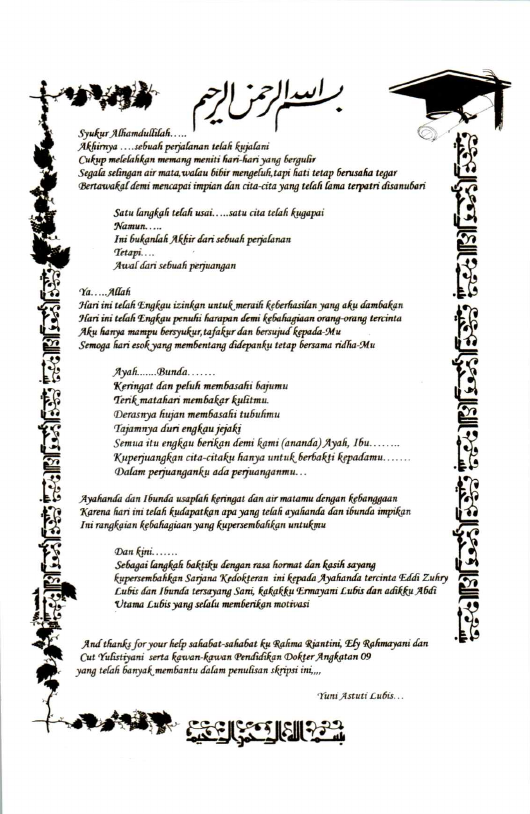 بسم الله الرحمن الرحيم
Syukur Alhamdullilah.....
Akhirnya ....sebuah perjalanan telah kujalani
Cukup melelahkan memang meniti hari-hari yang bergulir
Segala selingan air mata,walau bibir mengeluh,tapi hati tetap berusaha tegar
Bertawakal demi mencapai impian dan cita-cita yang telah lama terpatri disanubari
Satu langkah telah usai.....satu cita telah kugapai
Namun.....
Ini bukanlah Akhir dari sebuah perjalanan
Tetapi....
Awal dari sebuah perjuangan
Ya.....Allah
Hari ini telah Engkau izinkan untuk meraih keberhasilan yang aku dambakan
Hari ini telah Engkau penuhi harapan demi kebahagiaan orang-orang tercinta
Aku hanya mampu bersyukur,tafakur dan bersujud kepada-Mu
Semoga hari esok yang membentang didepanku tetap bersama ridha-Mu
Ayah.......Bunda.......
Keringat dan peluh membasahi bajumu
Terik matahari membakar kulitmu.
Derasnya hujan membasahi tubuhmu
Tajamnya duri engkau jejaki
Semua itu engkau berikan demi kami (ananda) Ayah, Ibu........
Kuperjuangkan cita-citaku hanya untuk berbakti kepadamu.......
Dalam perjuanganku ada perjuanganmu...
Ayahanda dan Ibunda usaplah keringat dan air matamu dengan kebanggaan
Karena hari ini telah kudapatkan apa yang telah ayahanda dan ibunda impikan
Ini rangkaian kebahagiaan yang kupersembahkan untukmu
Dan kini.......
Sebagai langkah baktiku dengan rasa hormat dan kasih sayang
kupersembahkan Sarjana Kedokteran ini kepada Ayahanda tercinta Eddi Zuhry
Lubis dan Ibunda tersayang Sani, kakakku Ermayani Lubis dan adikku Abdi
Utama Lubis yang selalu memberikan motivasi
And thanks for your help sahabat-sahabat ku Rahma Riantini, Ely Rahmayani dan
Cut Yulistiyani serta kawan-kawan Pendidikan Dokter Angkatan 09
yang telah banyak membantu dalam penulisan skripsi ini,,,,
Yuni Astuti Lubis...
بسم الله الرحمن الرحيم